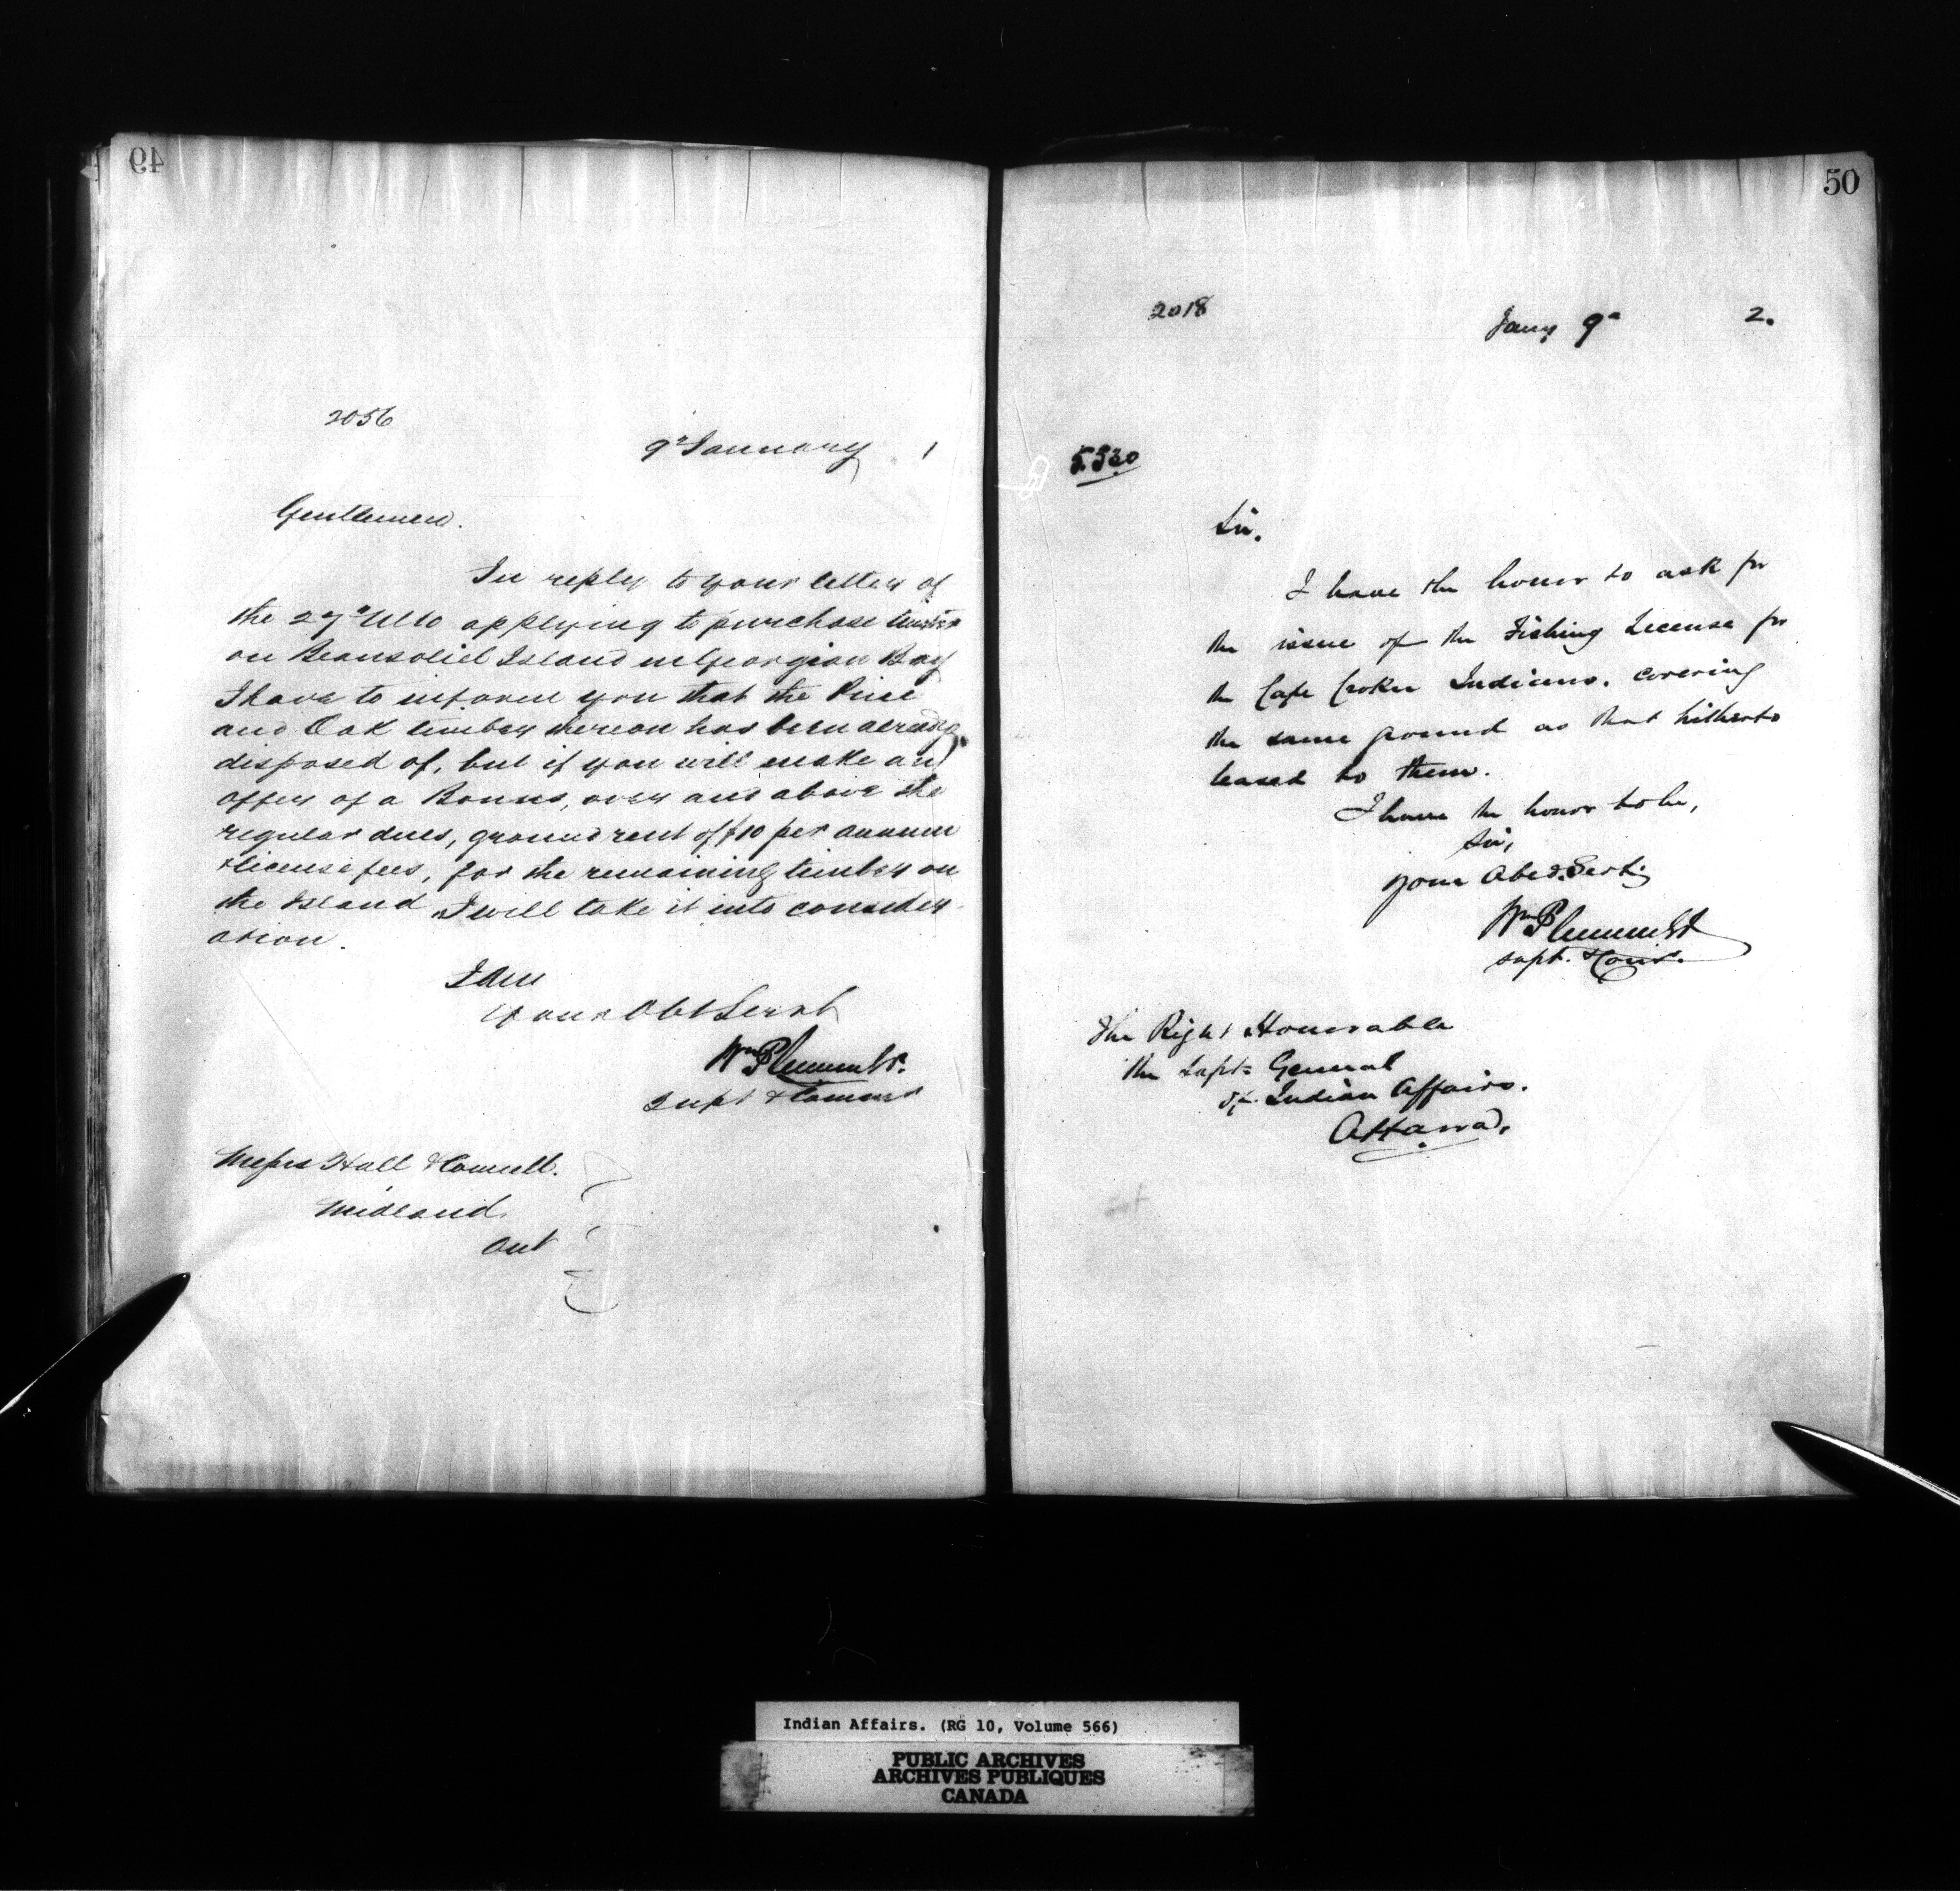 49
2056
9th January 1
Gentlemen.
In reply to your letter of
the 27th Ulto applying to purchase timber
on Beausoliel Island in Georgian Bay
I have to inform you that the Pine
and Oak timber thereon has been already
disposed of, but if you will make an
offer of a Bonus, over and above the
regular dues, ground rent of $10 per annum
& license fees, for the remaining timber on
the Island, I will take it into consider-
ation.
I am
Your Obt Servt
Wm Plummer.
Supt & Commr
Messrs Hall &
Midland.
Ont
50
2018
Jany 9th 2.
Sir.
I have the honor to ask for
the issue of the Fishing License for
the Cape Croker Indians, covering
the same ground as that hitherto
leased to them.
I have the honor to be,
Sir,
your Obed. Servt.
Wm Plummer
Supt. & Comr.
The Right Honorable
the Supt General
of Indian Affairs.
Ottawa.
Indian Affairs. (RG 10, Volume 566)
PUBLIC ARCHIVES
ARCHIVES PUBLIQUES
CANADA